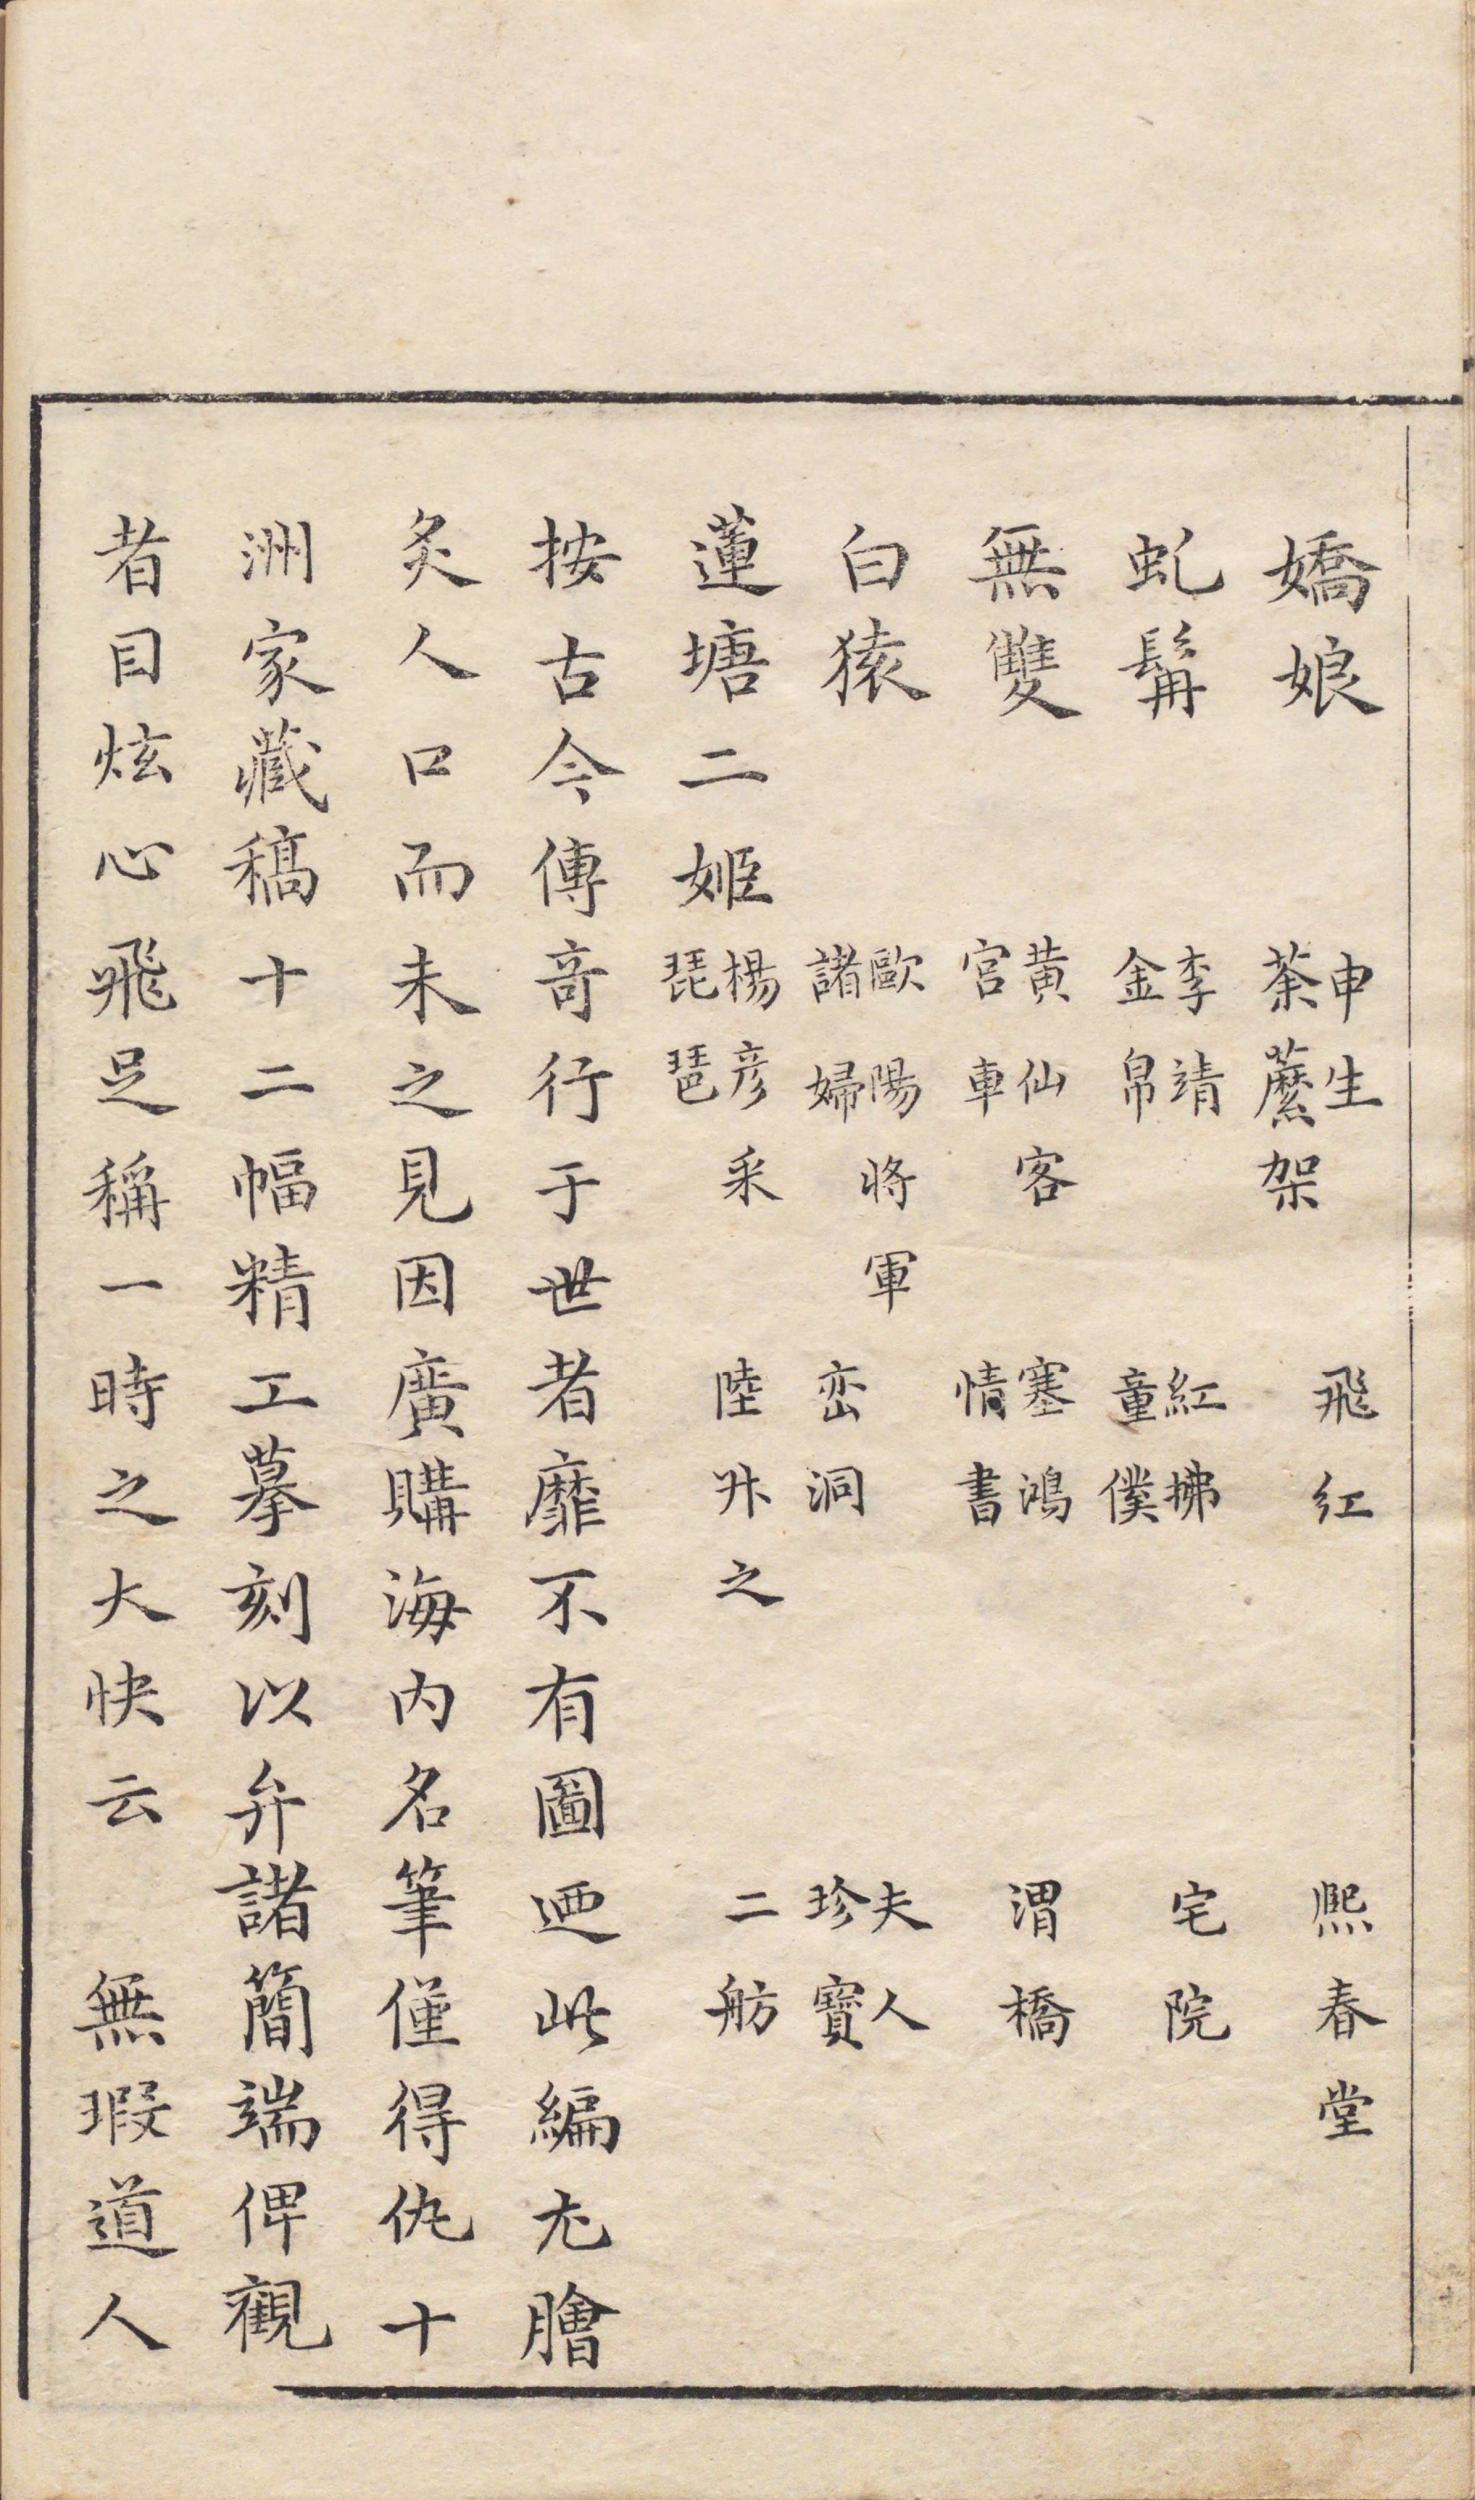 嬌娘 申生 荼蘼架 飛紅 熈春堂
虬髯 李靖 金帛 紅拂 童僕 宅院
無雙 黃仙客 宮車 塞鴻 情書 渭橋
白猿 歐陽將軍 諸婦 峦洞 夫人 珍寶
蓮塘二姬 楊彦采 琵琶 陸升之 二舫
按古今傳奇行于世者靡不有圖廼此編尤膾
炙人口而未之見因廣購海內名筆僅得仇十
洲家藏稿十二幅精工摹刻以弁諸簡端俾觀
者目炫心飛足稱一時之大快云 無瑕道人